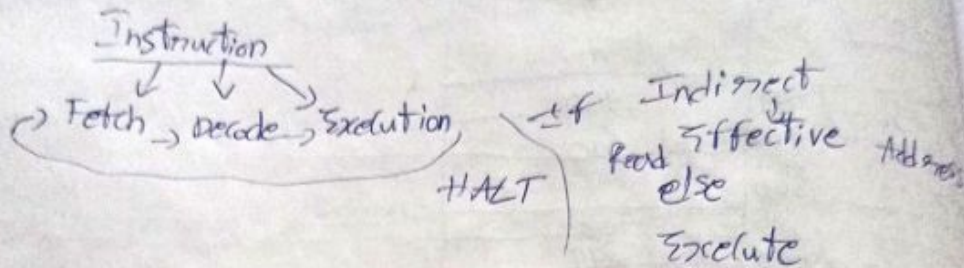 Instruction
Fetch → Decode → Execution
HALT
If Indirect
Read Effective Address
else
Execute